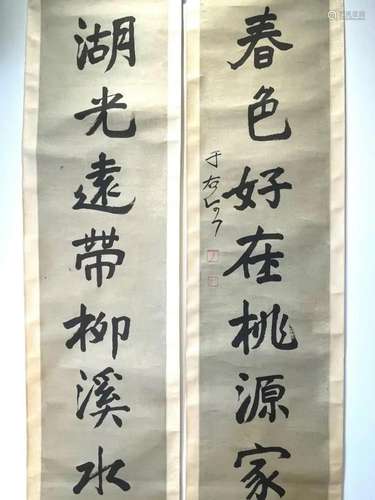 春色好在桃源家
于右任
湖光遠帶柳溪水